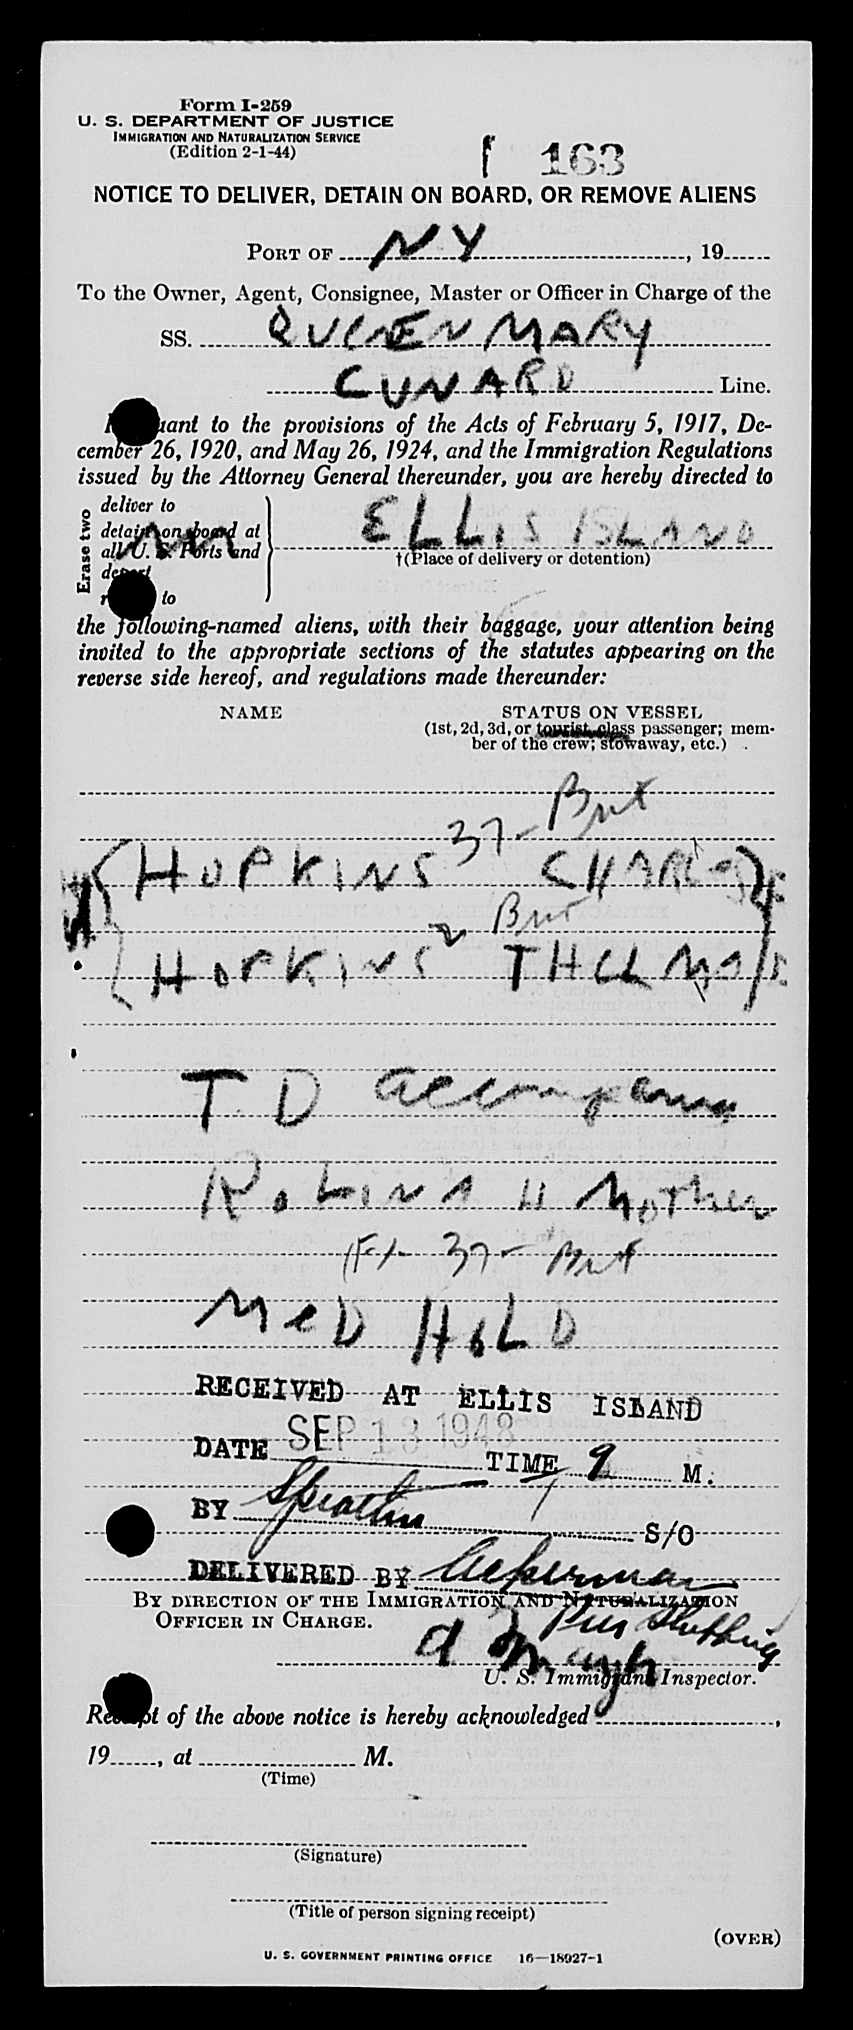 Form I-259
U. S. DEPARTMENT OF JUSTICE
IMMIGRATION AND NATURALIZATION SERVICE
(Edition 2-1-44)
163
NOTICE TO DELIVER, DETAIN ON BOARD, OR REMOVE ALIENS
PORT OF NY, 19
To the Owner, Agent, Consignee, Master or Officer in Charge of the
SS. QUEEN MARY
CUNARD Line.
to the provisions of the Acts of February 5, 1917, De-
cember 26, 1920, and May 26, 1924, and the Immigration Regulations
issued by the Attorney General thereunder, you are hereby directed to
Erase two
deliver to
detain on board at
all U. S. Ports and
to
ELLIS ISLAND
†(Place of delivery or detention)
the following-named aliens, with their baggage, your attention being
invited to the appropriate sections of the statutes appearing on the
reverse side hereof, and regulations made thereunder:
NAME STATUS ON VESSEL
(1st, 2d, 3d, or tourist class passenger; mem-
ber of the crew; stowaway, etc.)
37 - Brit
HOPKINS CHARLES
2 Brit
HOPKINS THELMA
T D accompany
ROBINA H Mother
(F) - 37 - Brit
MED HOLD
RECEIVED AT ELLIS ISLAND
DATE SEP 13 1948 TIME 9 M.
BY S/O
DELIVERED BY Ackerman
BY DIRECTION OF THE IMMIGRATION AND NATURALIZATION
OFFICER IN CHARGE.
U. S. Immigrant Inspector.
Receipt of the above notice is hereby acknowledged,
19, at M.
(Time)
(Signature)
(Title of person signing receipt)
(OVER)
U. S. GOVERNMENT PRINTING OFFICE 16—18027-1